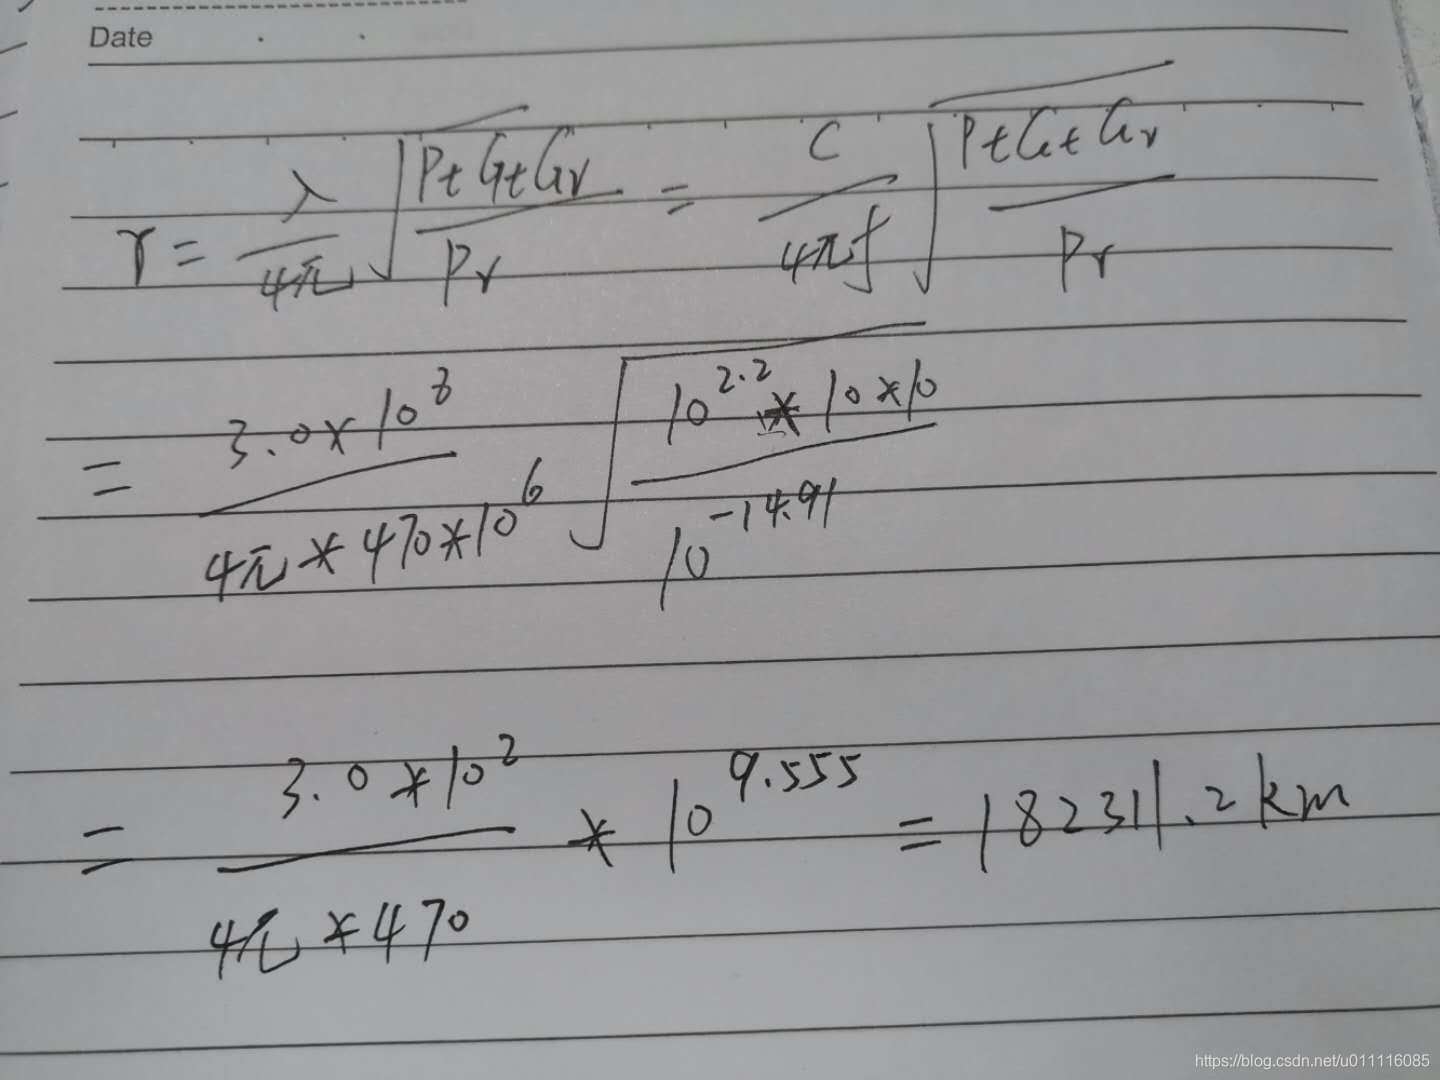 Date
r = λ/4π √(PtGtGr/Pr) = C/4πf √(PtGtGr/Pr)
= 3.0*10^8/4π*470*10^6 √(10^2.2*10*10/10^-14.91)
= 3.0*10^2/4π*470 * 10^9.555 = 18231.2km
https://blog.csdn.net/u011116085